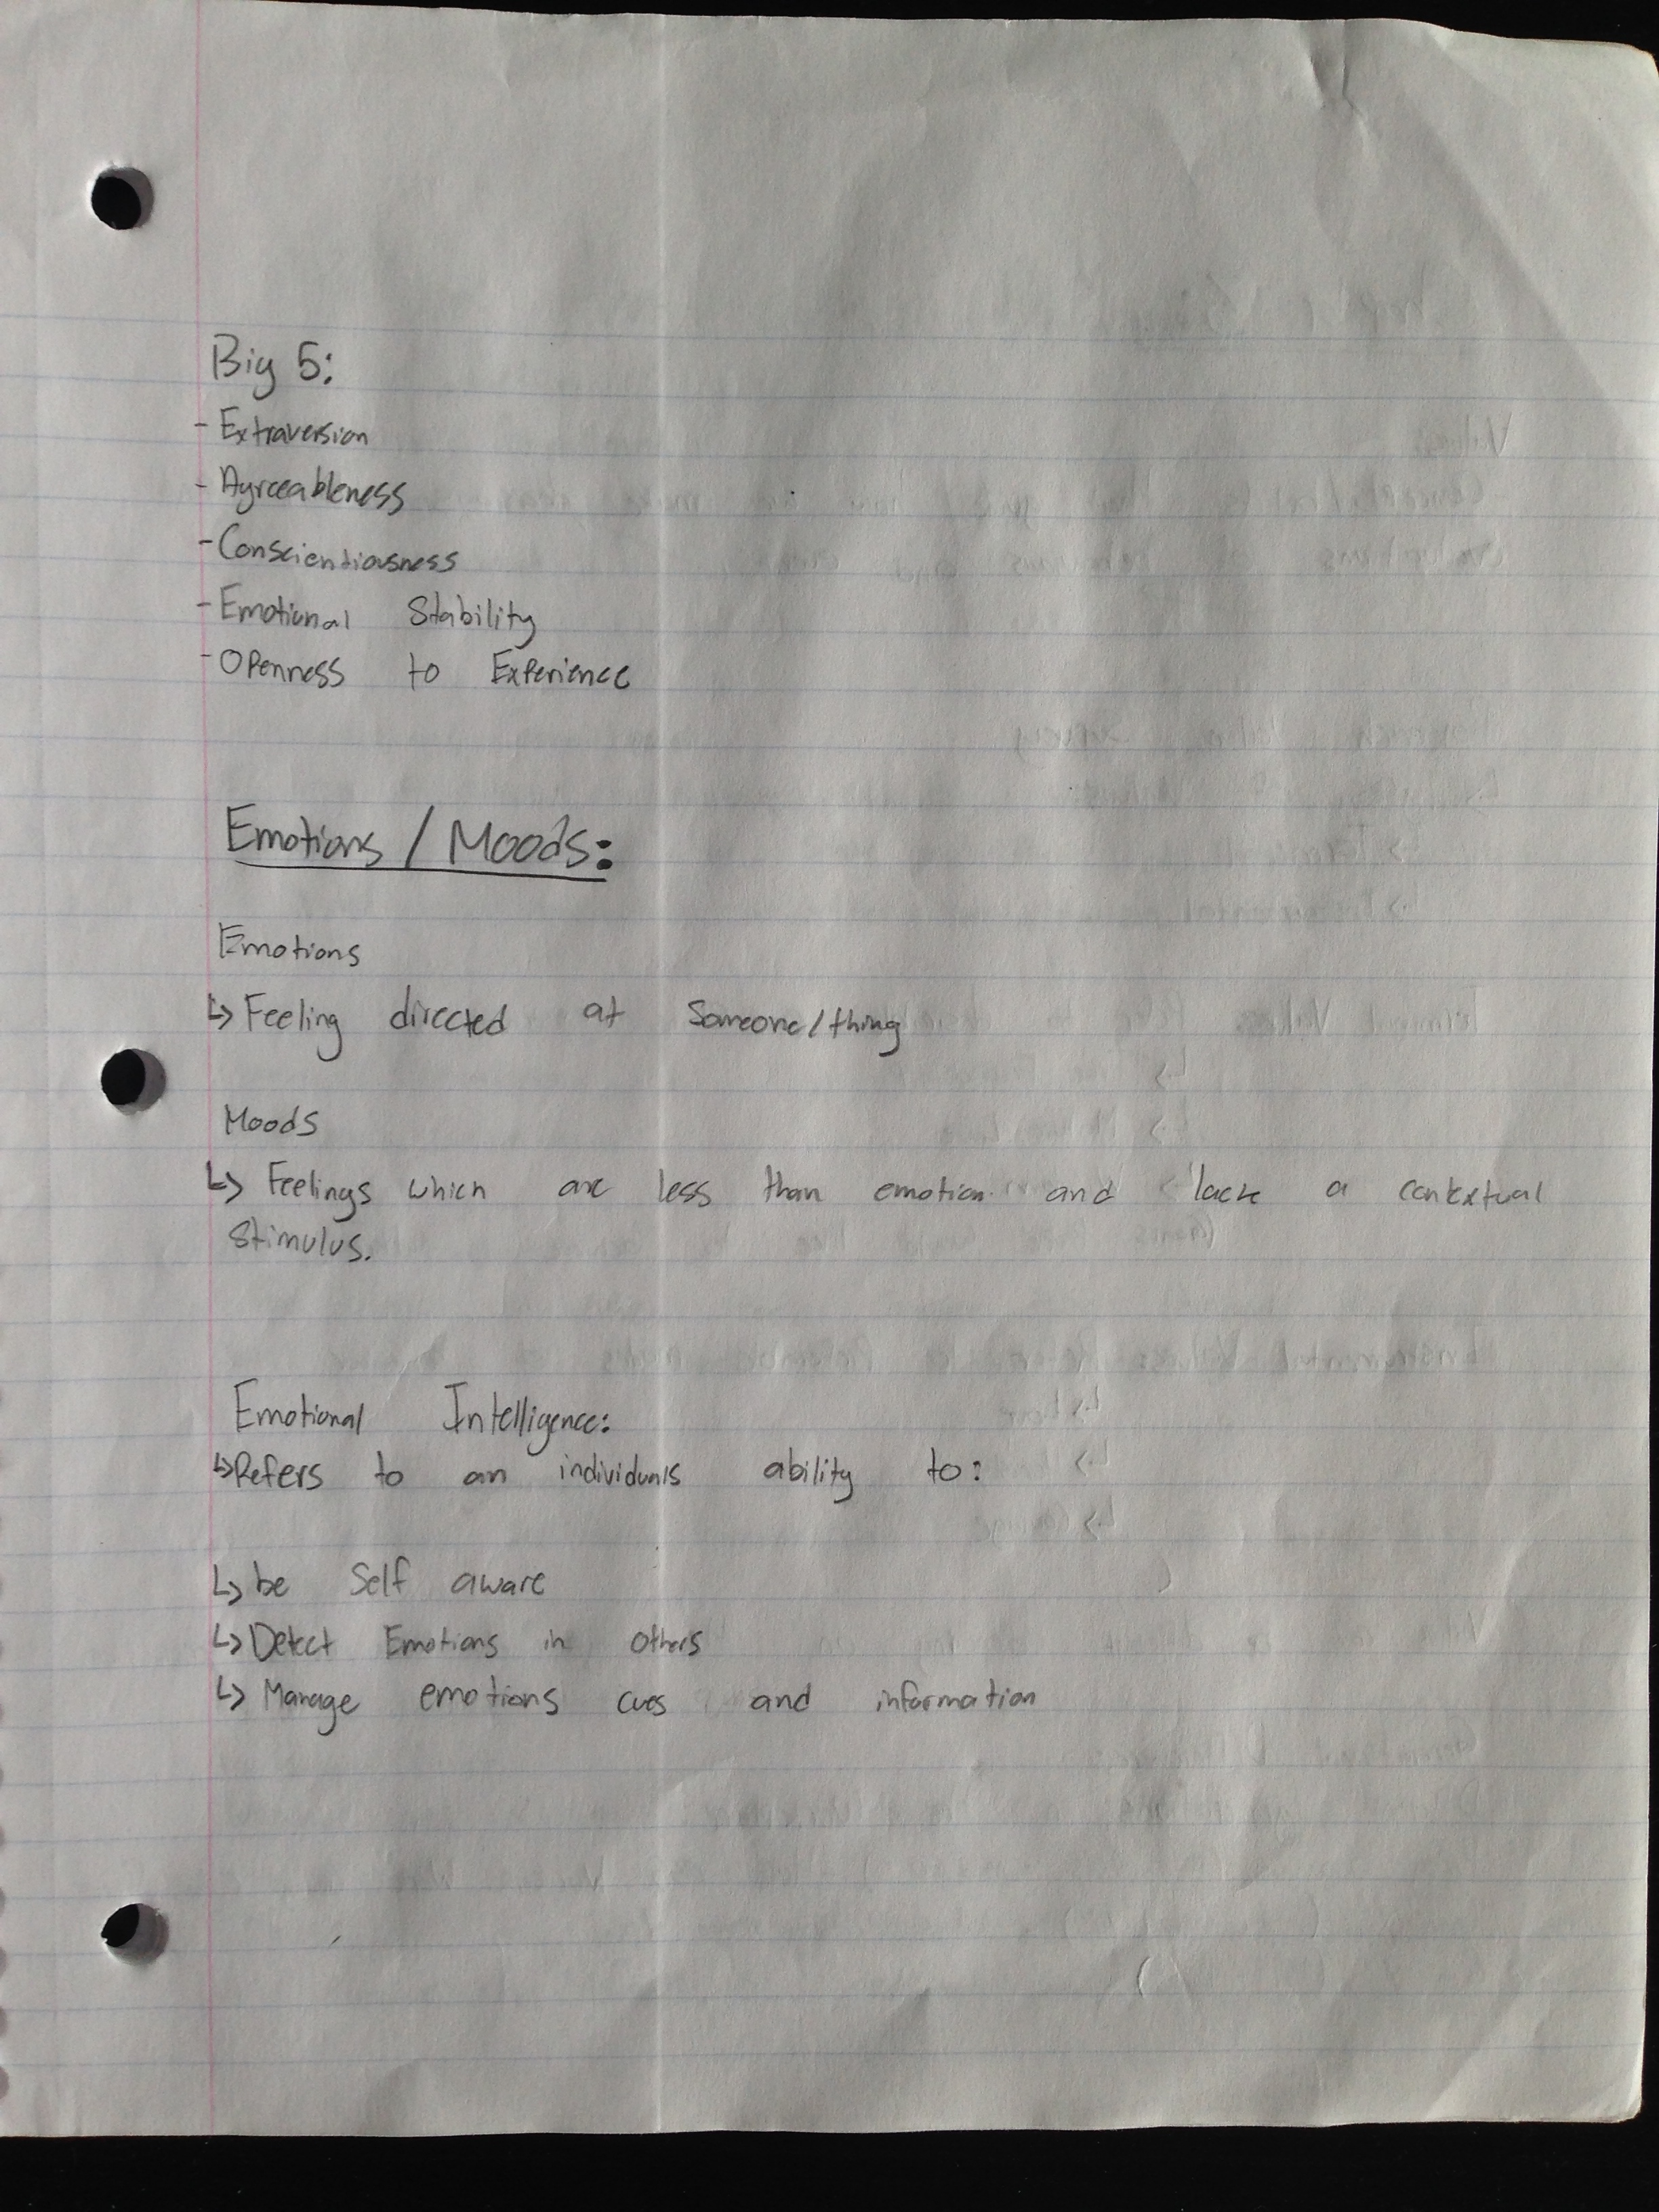 Big 5:
- Extraversion
- Agreeableness
- Conscientiousness
- Emotional Stability
- Openness to Experience
Emotions / Moods:
Emotions
↳ Feeling directed at Someone/thing
Moods
↳ Feelings which are less than emotion and lack a contextual
Stimulus.
Emotional Intelligence:
↳ Refers to an individuals ability to:
↳ be Self aware
↳ Detect Emotions in others
↳ Manage emotions cues and information